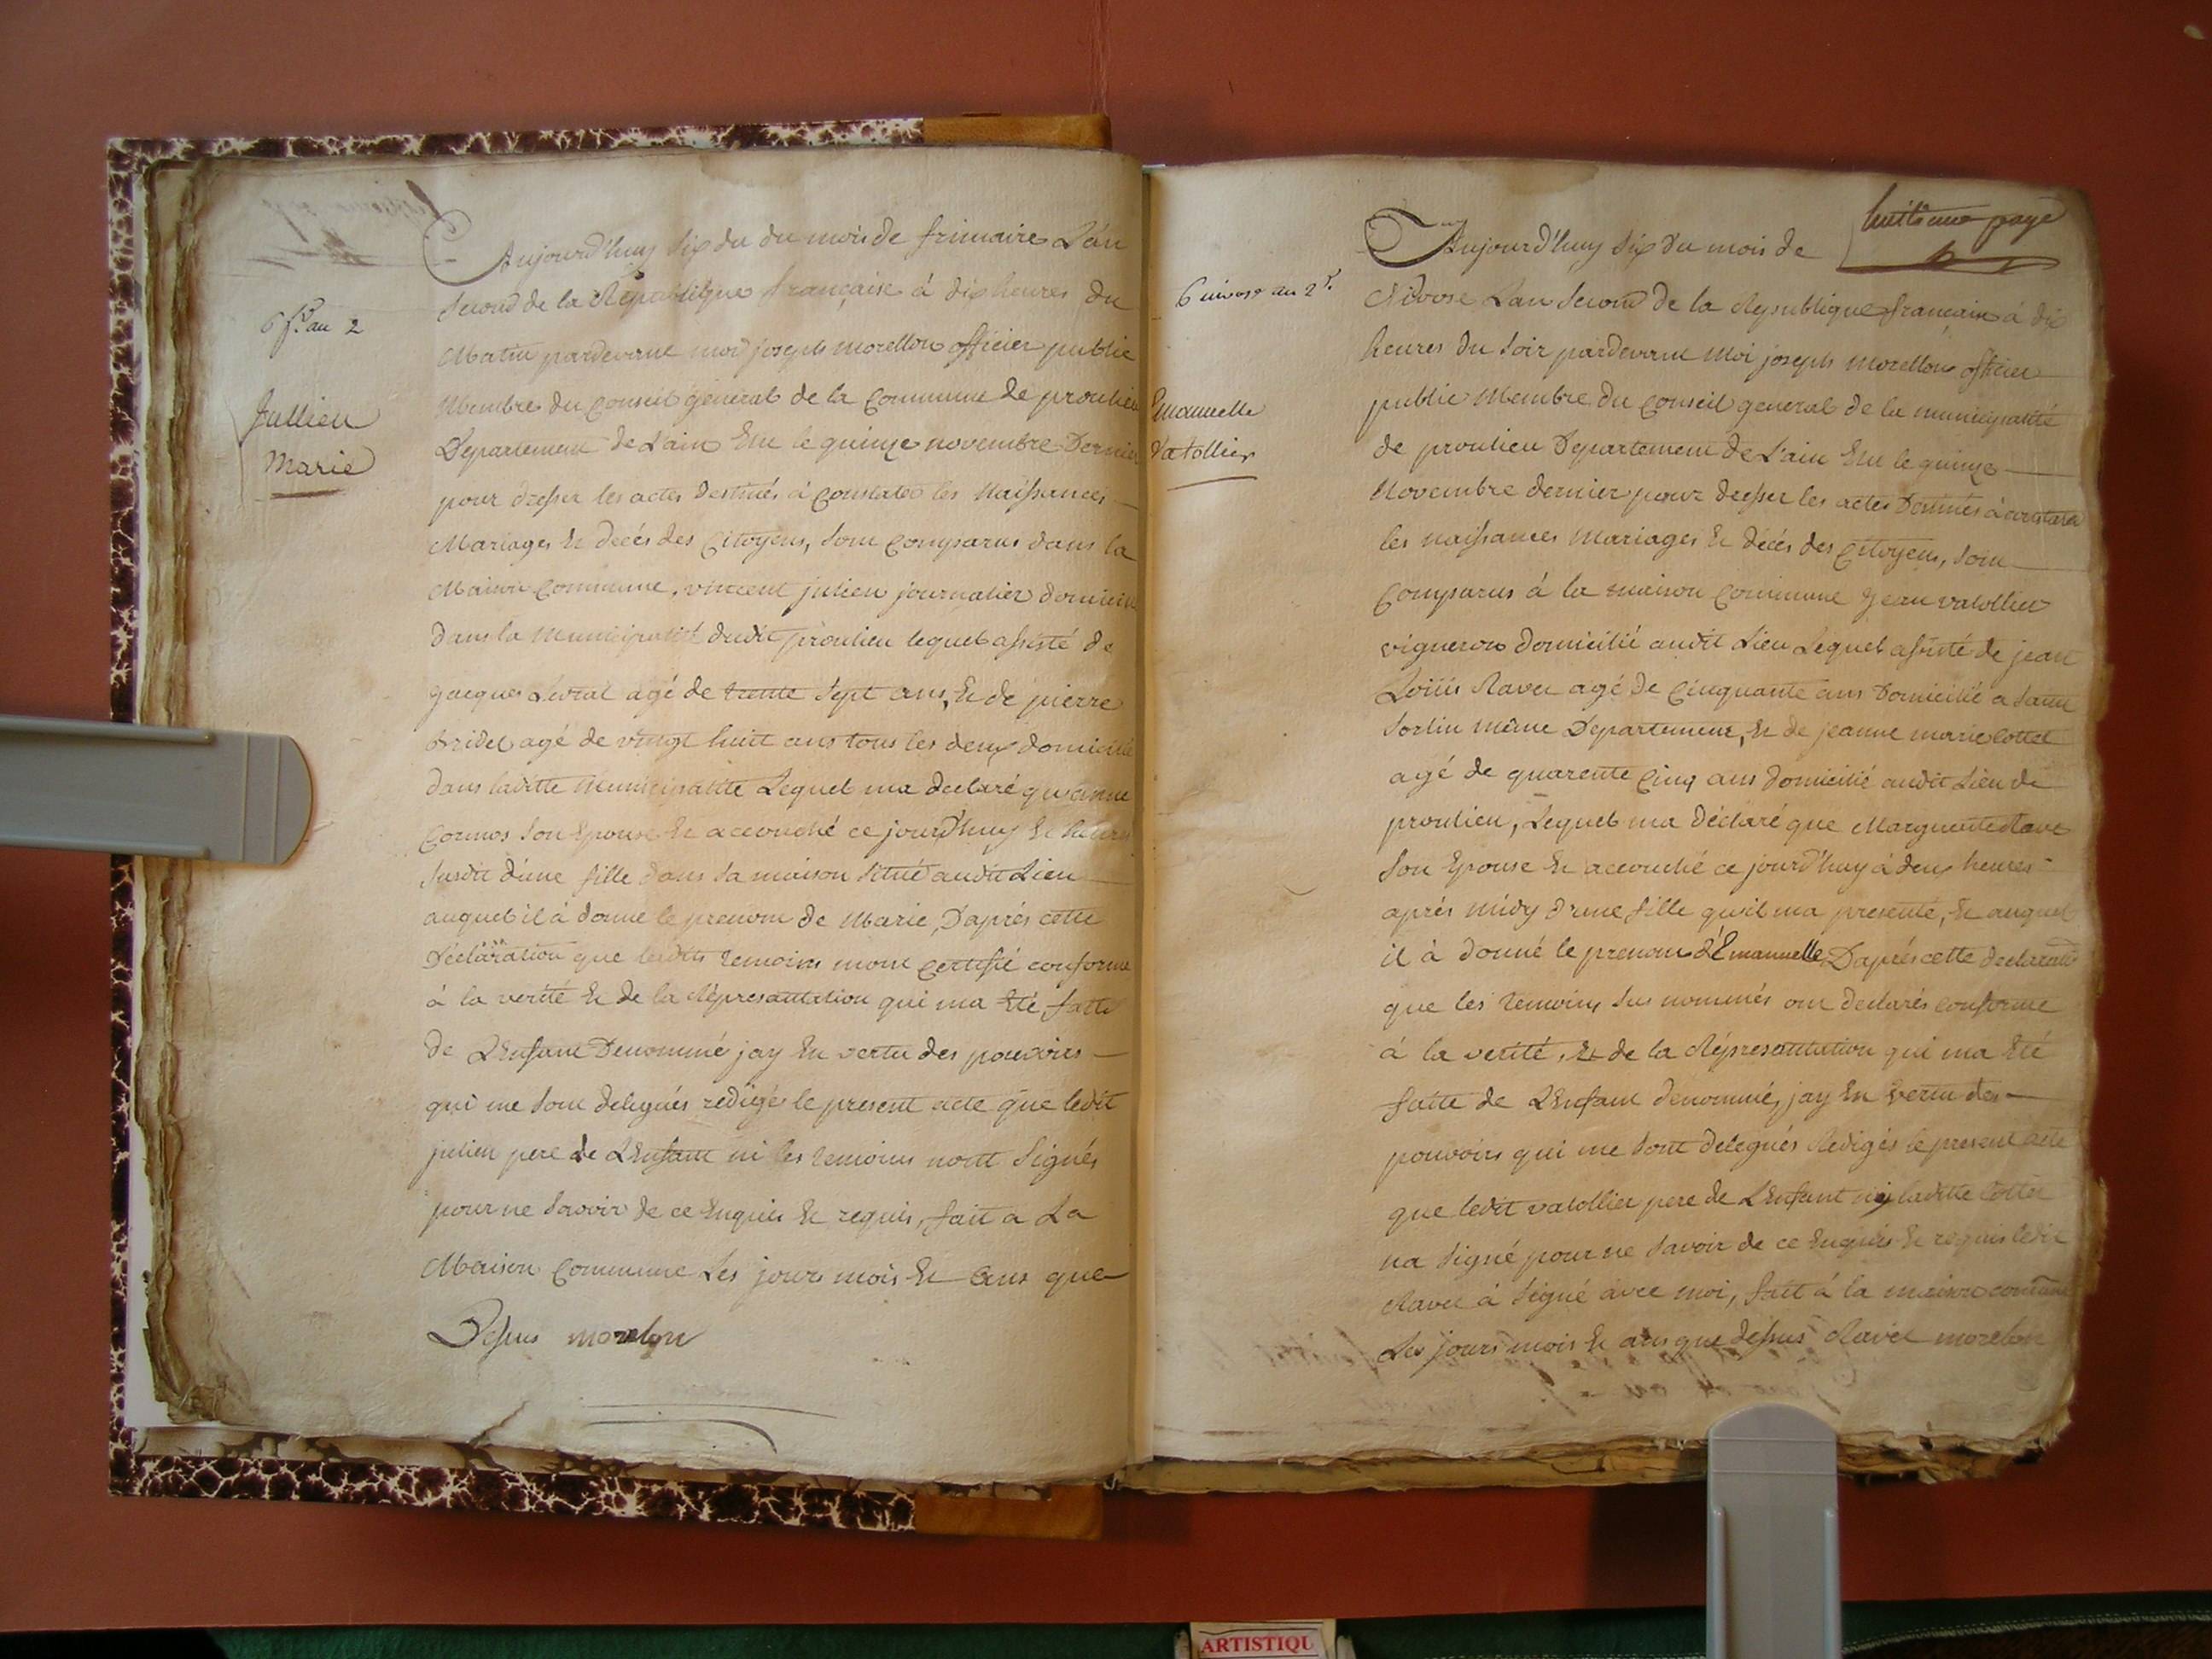 6 f.re an 2
Jullien
Marie
Aujourd'huy six du du mois de frimaire L'an
second de la Republilque française à dix heures du
Matin pardevant moy joseph morellon officier public
Membre du Conseil général de la Commune de proulieu
Departement de L'ain Elu le quinze novembre Dernier
pour dresser les actes destinés à Constater les Naissances
Mariages Et decés des Citoyens, sont Comparus dans la
Maison Commune, vincent julien journalier domicilié
dans la Municipalité dudit proulieu lequel assisté de
jacques Levrat agé de trente sept ans, Et de pierre
bridel agé de vingt huit ans tous les deux domicilié
dans laditte Municipalité Lequel ma declaré qu'anne
Cormos son Epouse Et accouché ce jourd'huy Et heures
susdit d'une fille dans sa maison situé audit Lieu
auquel il à donné le prenom de Marie, D'aprés cette
Déclaration que lesdits temoins mont Certifié conforme
à la verité Et de la Répresantation qui ma Eté faitte
de L'Enfant Denommé jay En vertu des pouvoirs
qui me sont delegués redigés le présent acte que ledit
julien pere de L'Enfant ni les temoins nont signés
pour ne savoir de ce Enquis Et requis, fait a La
Maison Commune Les jours mois Et ans que
Dessus morelon
huitieme page
6 nivose an 2d.
Emanuelle
Vatollier
Aujourd'huy six du mois de
Nivose L'an second de la République française à dix
heures du soir pardevant Moi joseph morellon officier
public Membre du Conseil general de la municipalité
de proulieu Departement de L'ain Elu le quinze
Novembre dernier pour dresser les actes Destinés à constater
les naissances Mariages Et décés des Citoyens, sont
Comparus à la maison Commune jean vatollier
vigneron domicilié audit Lieu Lequel assisté de jean
Loüis Ravet agé de Cinquante ans Domicilié a saint
sorlin même Departement, Et de jeanne marie Cottet
agé de quarente Cinq ans domicilié audit Lieu de
proulieu, Lequel ma déclaré que Marguerite Ravet
son Epouse Et accouché ce jourd'huy à deux heures
aprés midy d'une fille qu'il ma presenté, Et auquel
il à donné le prenom d'Emanuelle D'aprés cette declaration
que les temoins sus nommés ont declarés conforme
à la verité, Et de la Répresantation qui ma Eté
faitte de L'Enfant dénommé, jay En vertu des
pouvoirs qui me sont delegués Redigés le present acte
que ledit vatollier pere de L'Enfant ny laditte Cottet
na signé pour ne savoir de ce Enquis Et requis ledit
Ravet à signé avec moi, fait à la maison commune
Les jours mois Et ans que dessus Ravet morelon
ARTISTIQU